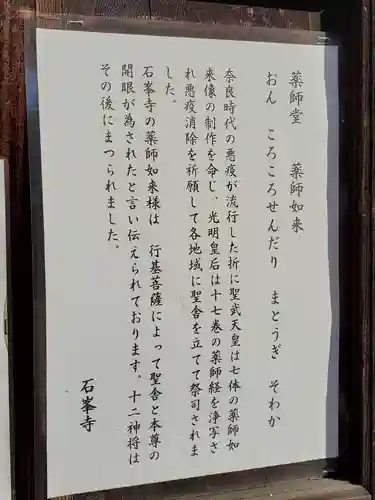 薬師堂　薬師如来
おん　ころころせんだり　まとうぎ　そわか
奈良時代の悪疫が流行した折に聖武天皇は七体の薬師如
来像の制作を命じ、光明皇后は十七巻の薬師経を浄写さ
れ悪疫消除を祈願して各地域に聖舎を立てて祭司されま
した。
石峯寺の薬師如来様は　行基菩薩によって聖舎と本尊の
開眼が為されたと言い伝えられております。十二神将は
その後にまつられました。
石峯寺